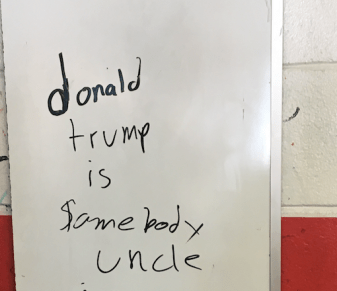 donald
trump
is
Somebody
uncle